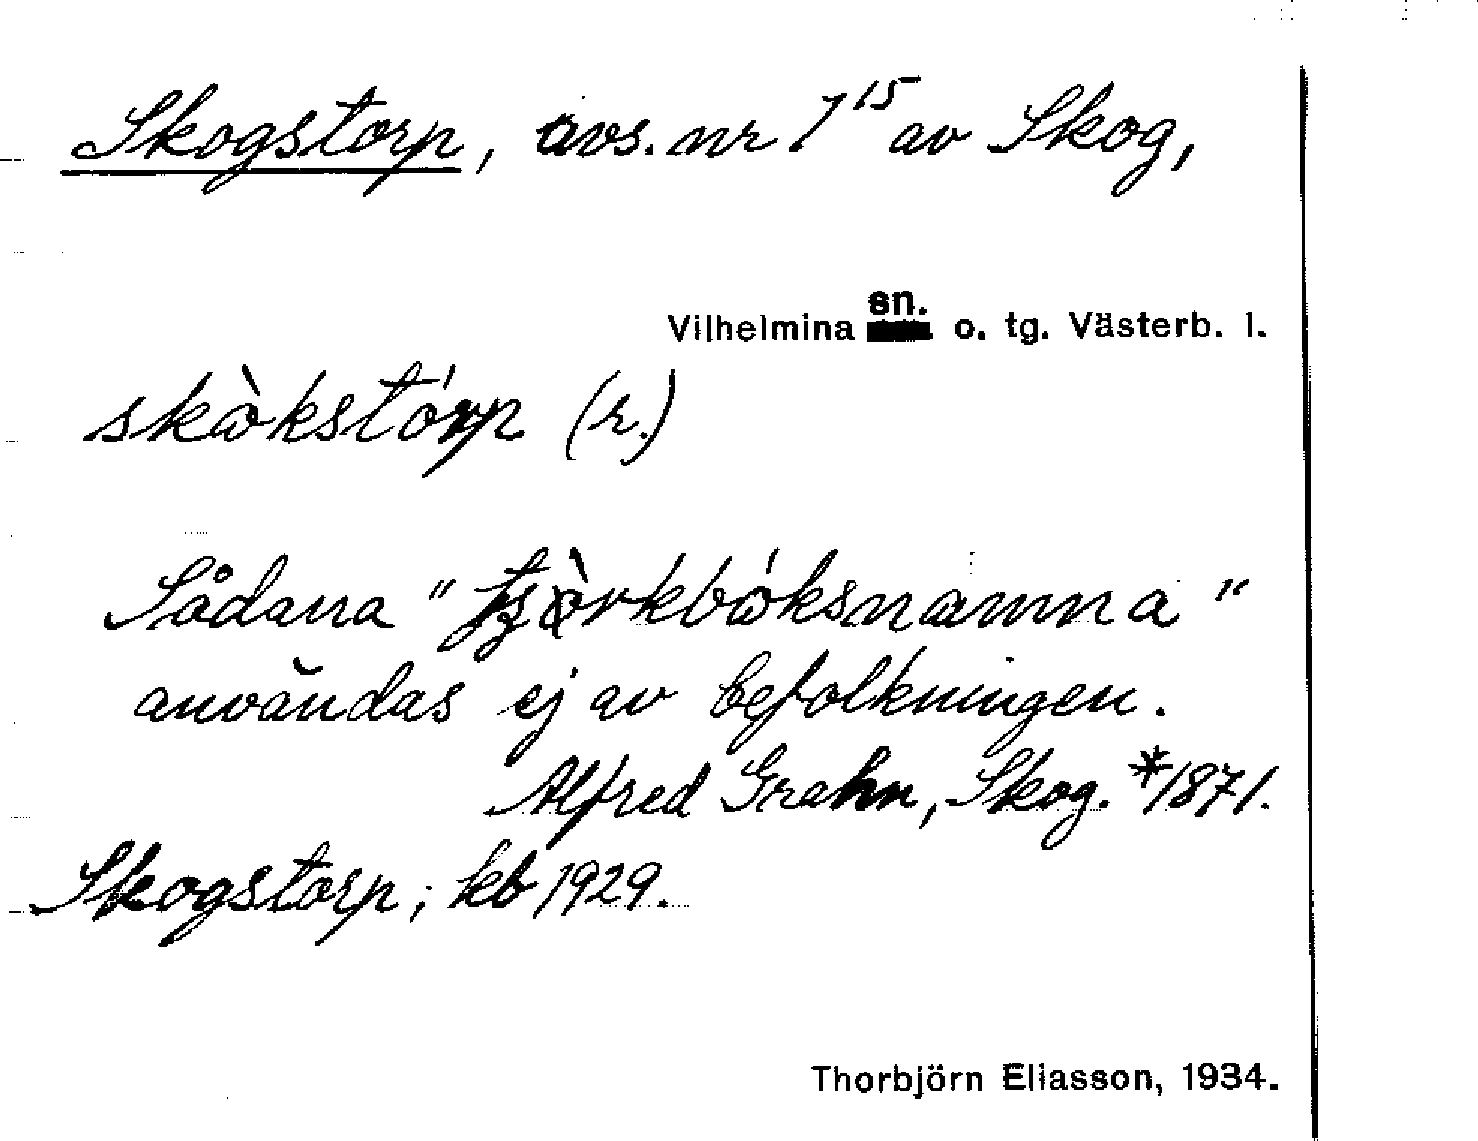 Skogstorp, avs. nr 1¹⁵ av Skog,
Vilhelmina sn. o. tg. Västerb. l.
skòkstórp (r.)
Sådana "
användas ej av befolkningen.
Alfred Grahn, Skog. *1871.
Skogstorp; kb 1929.
Thorbjörn Eliasson, 1934.